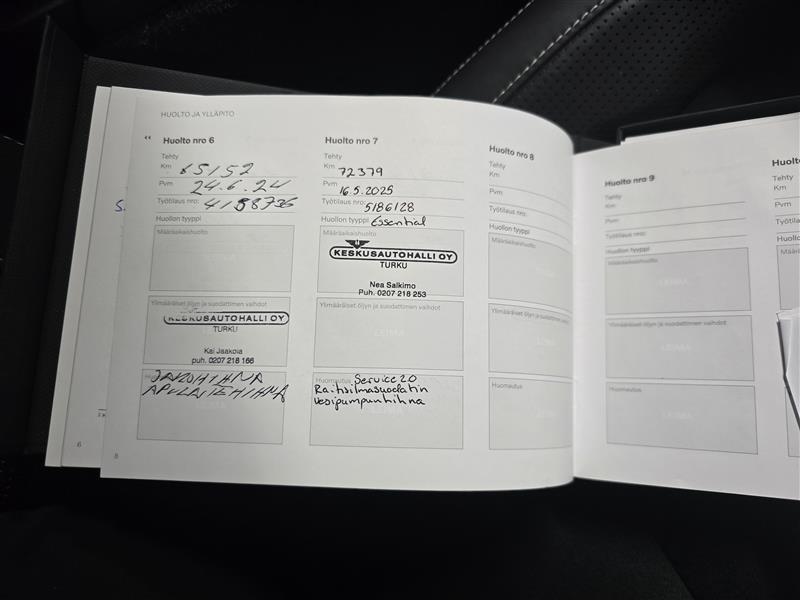 HUOLTO JA YLLÄPITO
“ Huolto nro 6
Tehty
Km 65152
Pvm 24.6.24
Työtilaus nro: 4188736
Huollon tyyppi
Määräaikaishuolto
Ylimääräiset öljyn ja suodattimen vaihdot
KESKUSAUTOHALLI OY
TURKU
Kai Jaakola
puh. 0207 218 166
JAKOHIHNA
APULAITEHIHNA
Huolto nro 7
Tehty
Km 72379
Pvm 16.5.2025
Työtilaus nro: 5186128
Huollon tyyppi Essential
Määräaikaishuolto
KESKUSAUTOHALLI OY
TURKU
Nea Salkimo
Puh. 0207 218 253
Ylimääräiset öljyn ja suodattimen vaihdot
Huomautus Service 2.0
Raitisilmasuodatin
Vesipumpun hihna
Huolto nro 8
Tehty
Km
Pvm
Työtilaus nro:
Huollon tyyppi
Määräaikaishuolto
Ylimääräiset öljyn ja suodattimen vaihdot
Huomautus
Huolto nro 9
Tehty
Km
Pvm
Työtilaus nro:
Huollon tyyppi
Määräaikaishuolto
Ylimääräiset öljyn ja suodattimen vaihdot
Huomautus
Huolto
Tehty
Km
Pvm
Työtil
Huollo
6
8